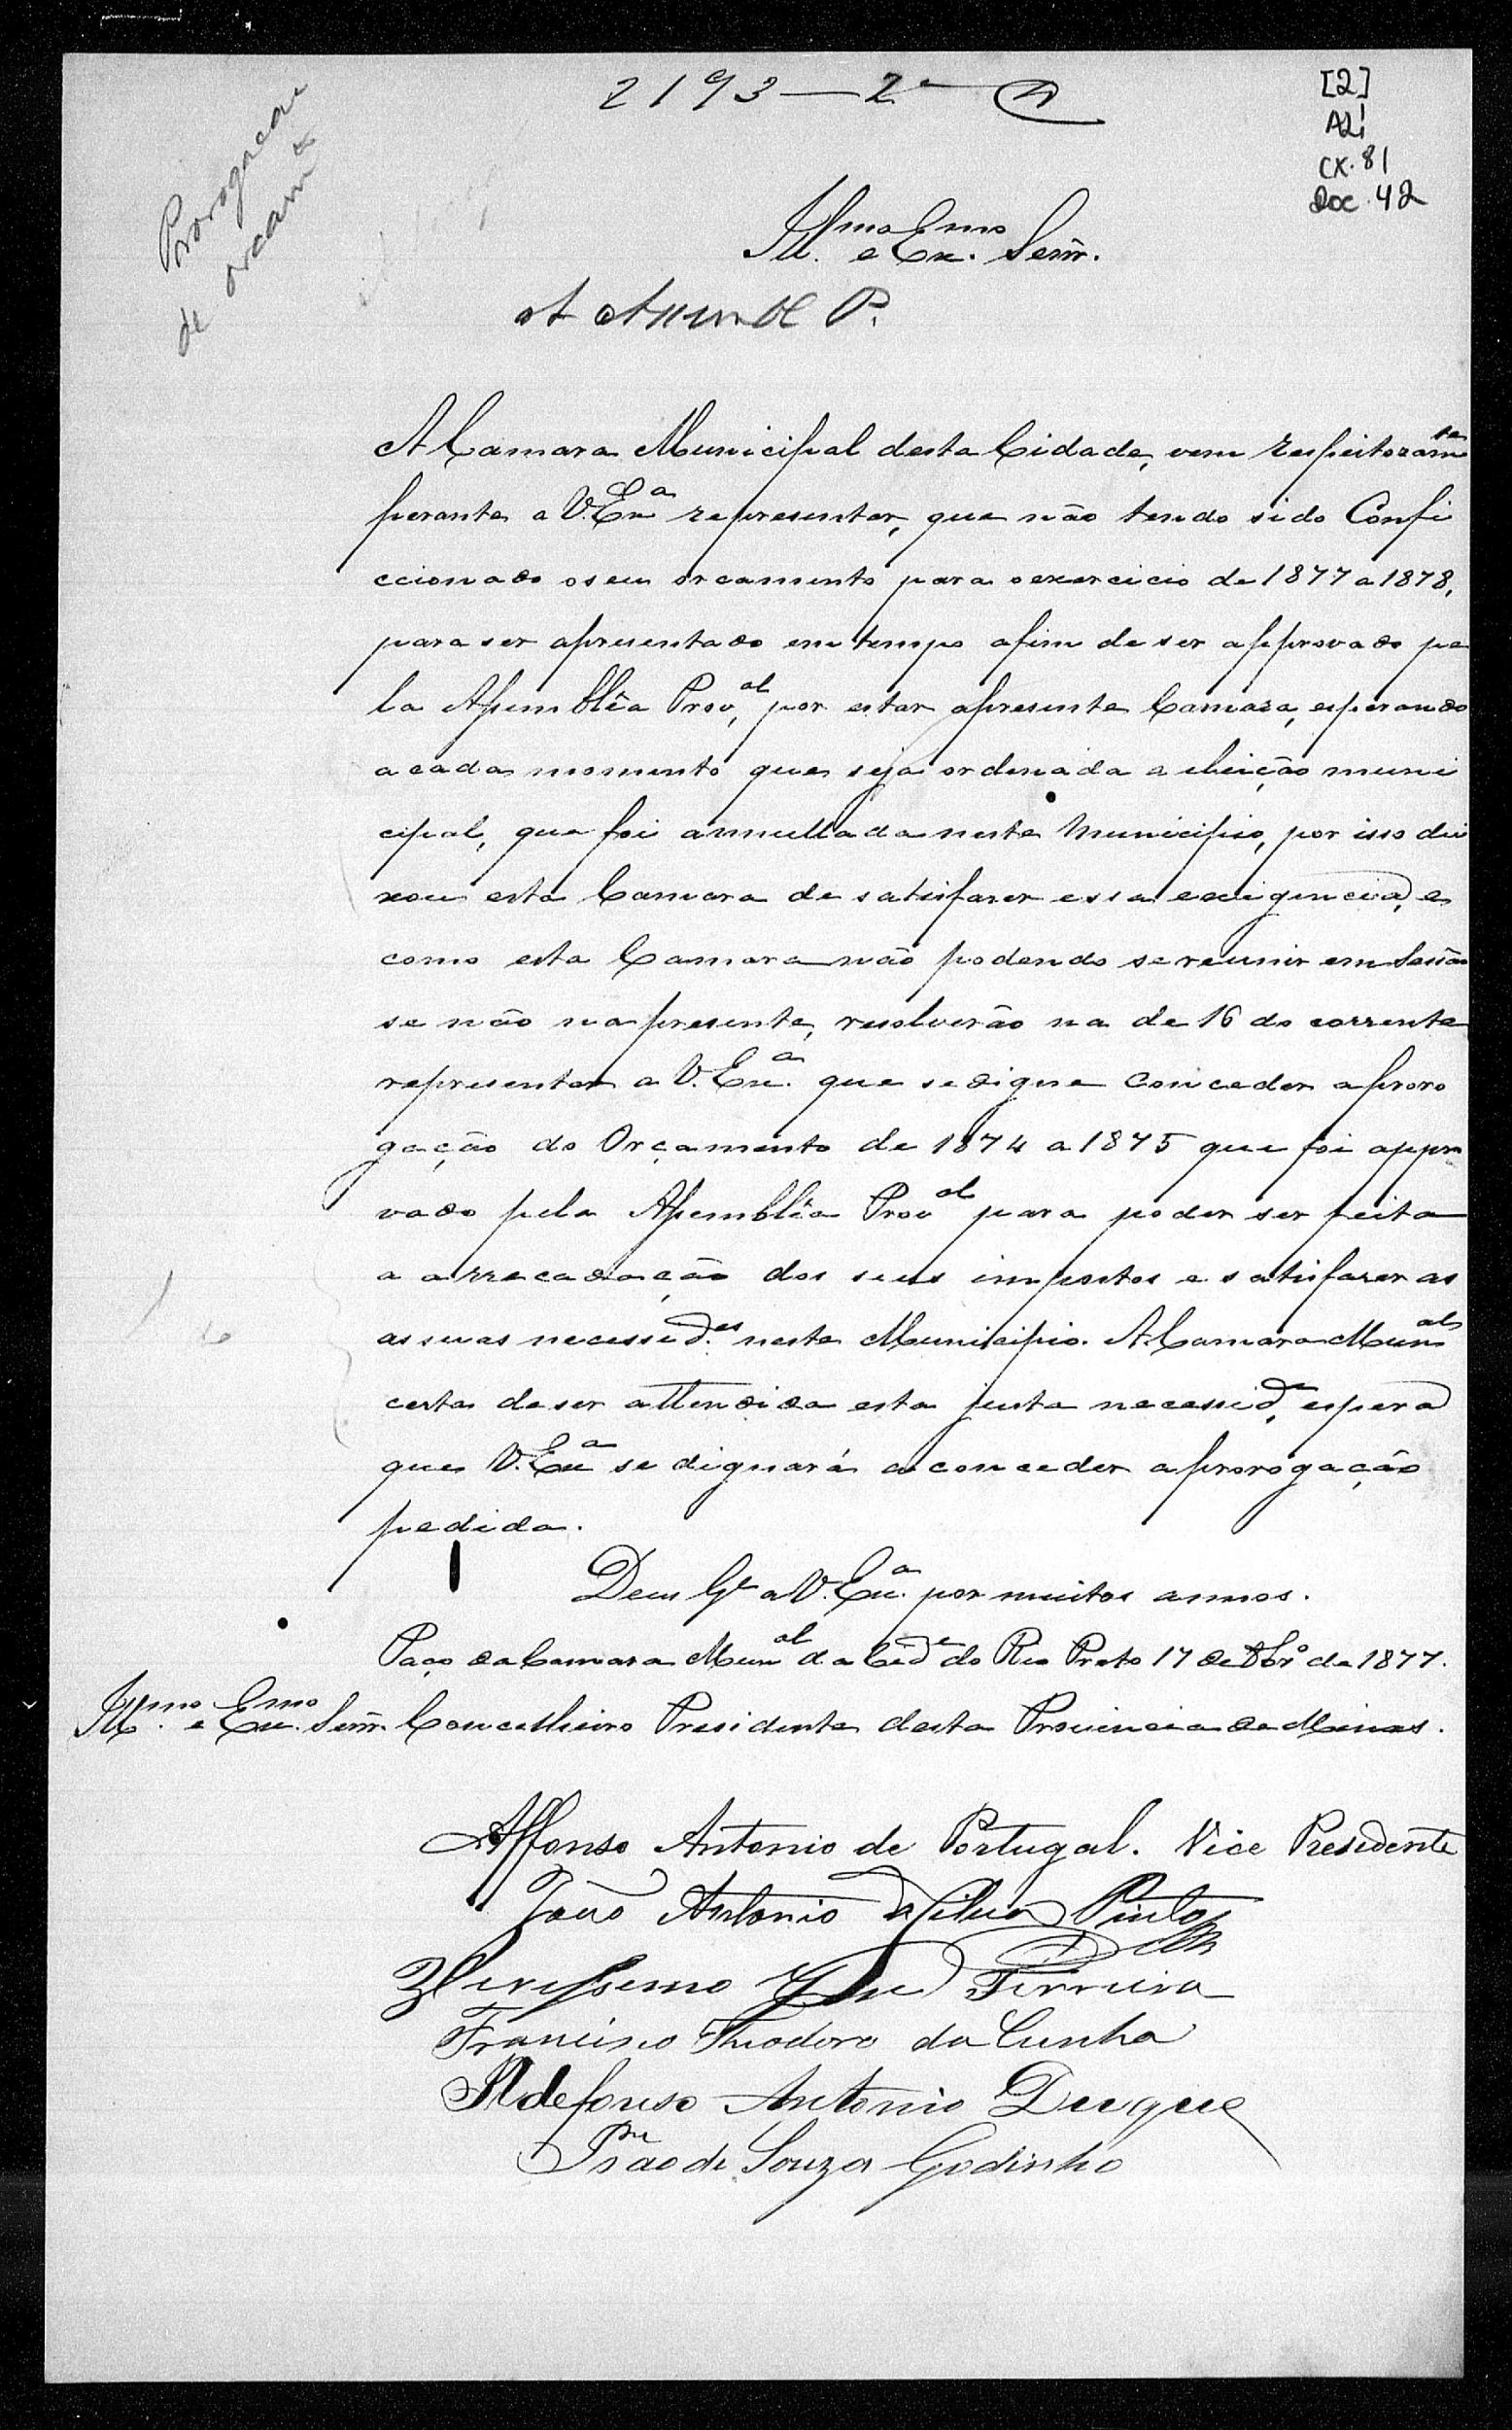 2193—2a
[2]
AL1
CX. 81
Doc. 42
Prorogaçao
de orcamto
Illmo e Exmo Senr.
A Assem P.
A Camara Municipal desta Cidade, vem respeitozamte
perante a V. Exa representar, que não tendo sido Confi
ccionado o seu orcamento para o exercicio de 1877 a 1878,
para ser apresentado em tempo afim de ser approvado pe
la Assemblêa Proval, por estar apresente Camara, esperando
a cada momento que seja ordenada a eleição muni
cipal, que foi annullada neste Municipio, por isso dei
xou esta Camara de satisfazer essa exigencia, e
como esta Camara não podendo se reunir em Sessão
se não na presente, resolverão na de 16 do corrente
representar a V. Exa. que se digne Conceder a proro
gação do Orçamento de 1874 a 1875 que foi appro
vado pela Assemblêa Proval para poder ser feita
a arrecadação dos seus impostos e satisfazer as
as suas necessides neste Municipio. A Camara Munal
certa de ser attendida esta justa necesside, espera
que V. Exa se dignará a conceder a prorogação
pedida.
Deus Ge a V. Exa. por muitos annos.
Paço da Camara Munal da Cide do Rio Preto 17 de 8bro de 1877.
Illmo e Exmo Senr. Concelheiro Presidente desta Provincia de Minas.
Affonso Antonio de Portugal. Vice Presidente
João Antonio da Silva Pinto
Verissemo Ferreira
Francisco Theodoro da Cunha
Ildefonso Antonio Duque
de Souza Godinho